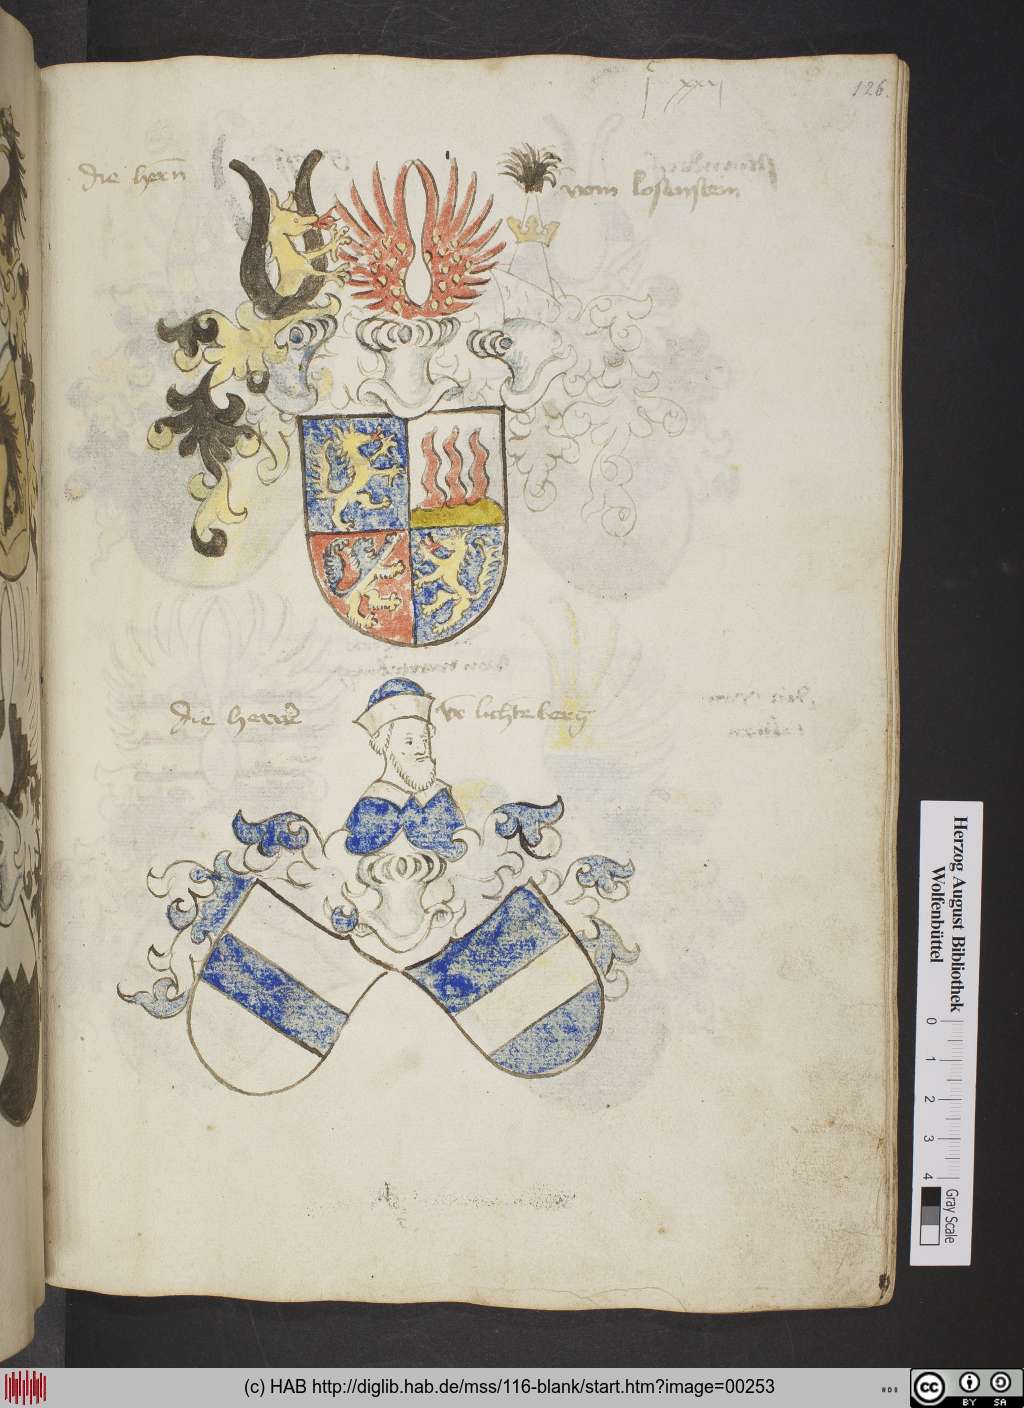 126
die hern̄ vom losenstein
die herrē vō lichtēberg
Herzog August Bibliothek
Wolfenbüttel
0 1 2 3 4
Gray Scale
(c) HAB http://diglib.hab.de/mss/116-blank/start.htm?image=00253
HDB
cc
BY SA